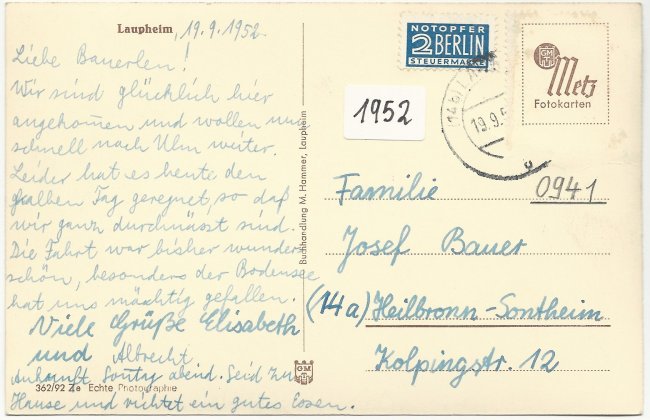 Laupheim, 19.9.1952
Liebe Bauerlen!
Wir sind glücklich hier
angekommen und wollen nun
schnell nach Ulm weiter.
Leider hat es heute den
halben Tag geregnet, so daß
wir ganz durchnässt sind.
Die Fahrt war bisher wunder
schön, besonders der Bodensee
hat uns mächtig gefallen.
Viele Grüße Elisabeth
und Albrecht
Ankunft Sontag abend. Seid zu
Hause und richtet ein gutes Essen.
362/92 Echte Photographie
Buchhandlung M. Hammer, Laupheim
NOTOPFER
2 BERLIN
STEUERMARKE
1952
19.9.5
GM
Metz
Fotokarten
0941
Familie
Josef Bauer
(14a) Heilbronn-Sontheim
Kolpingstr. 12
GM